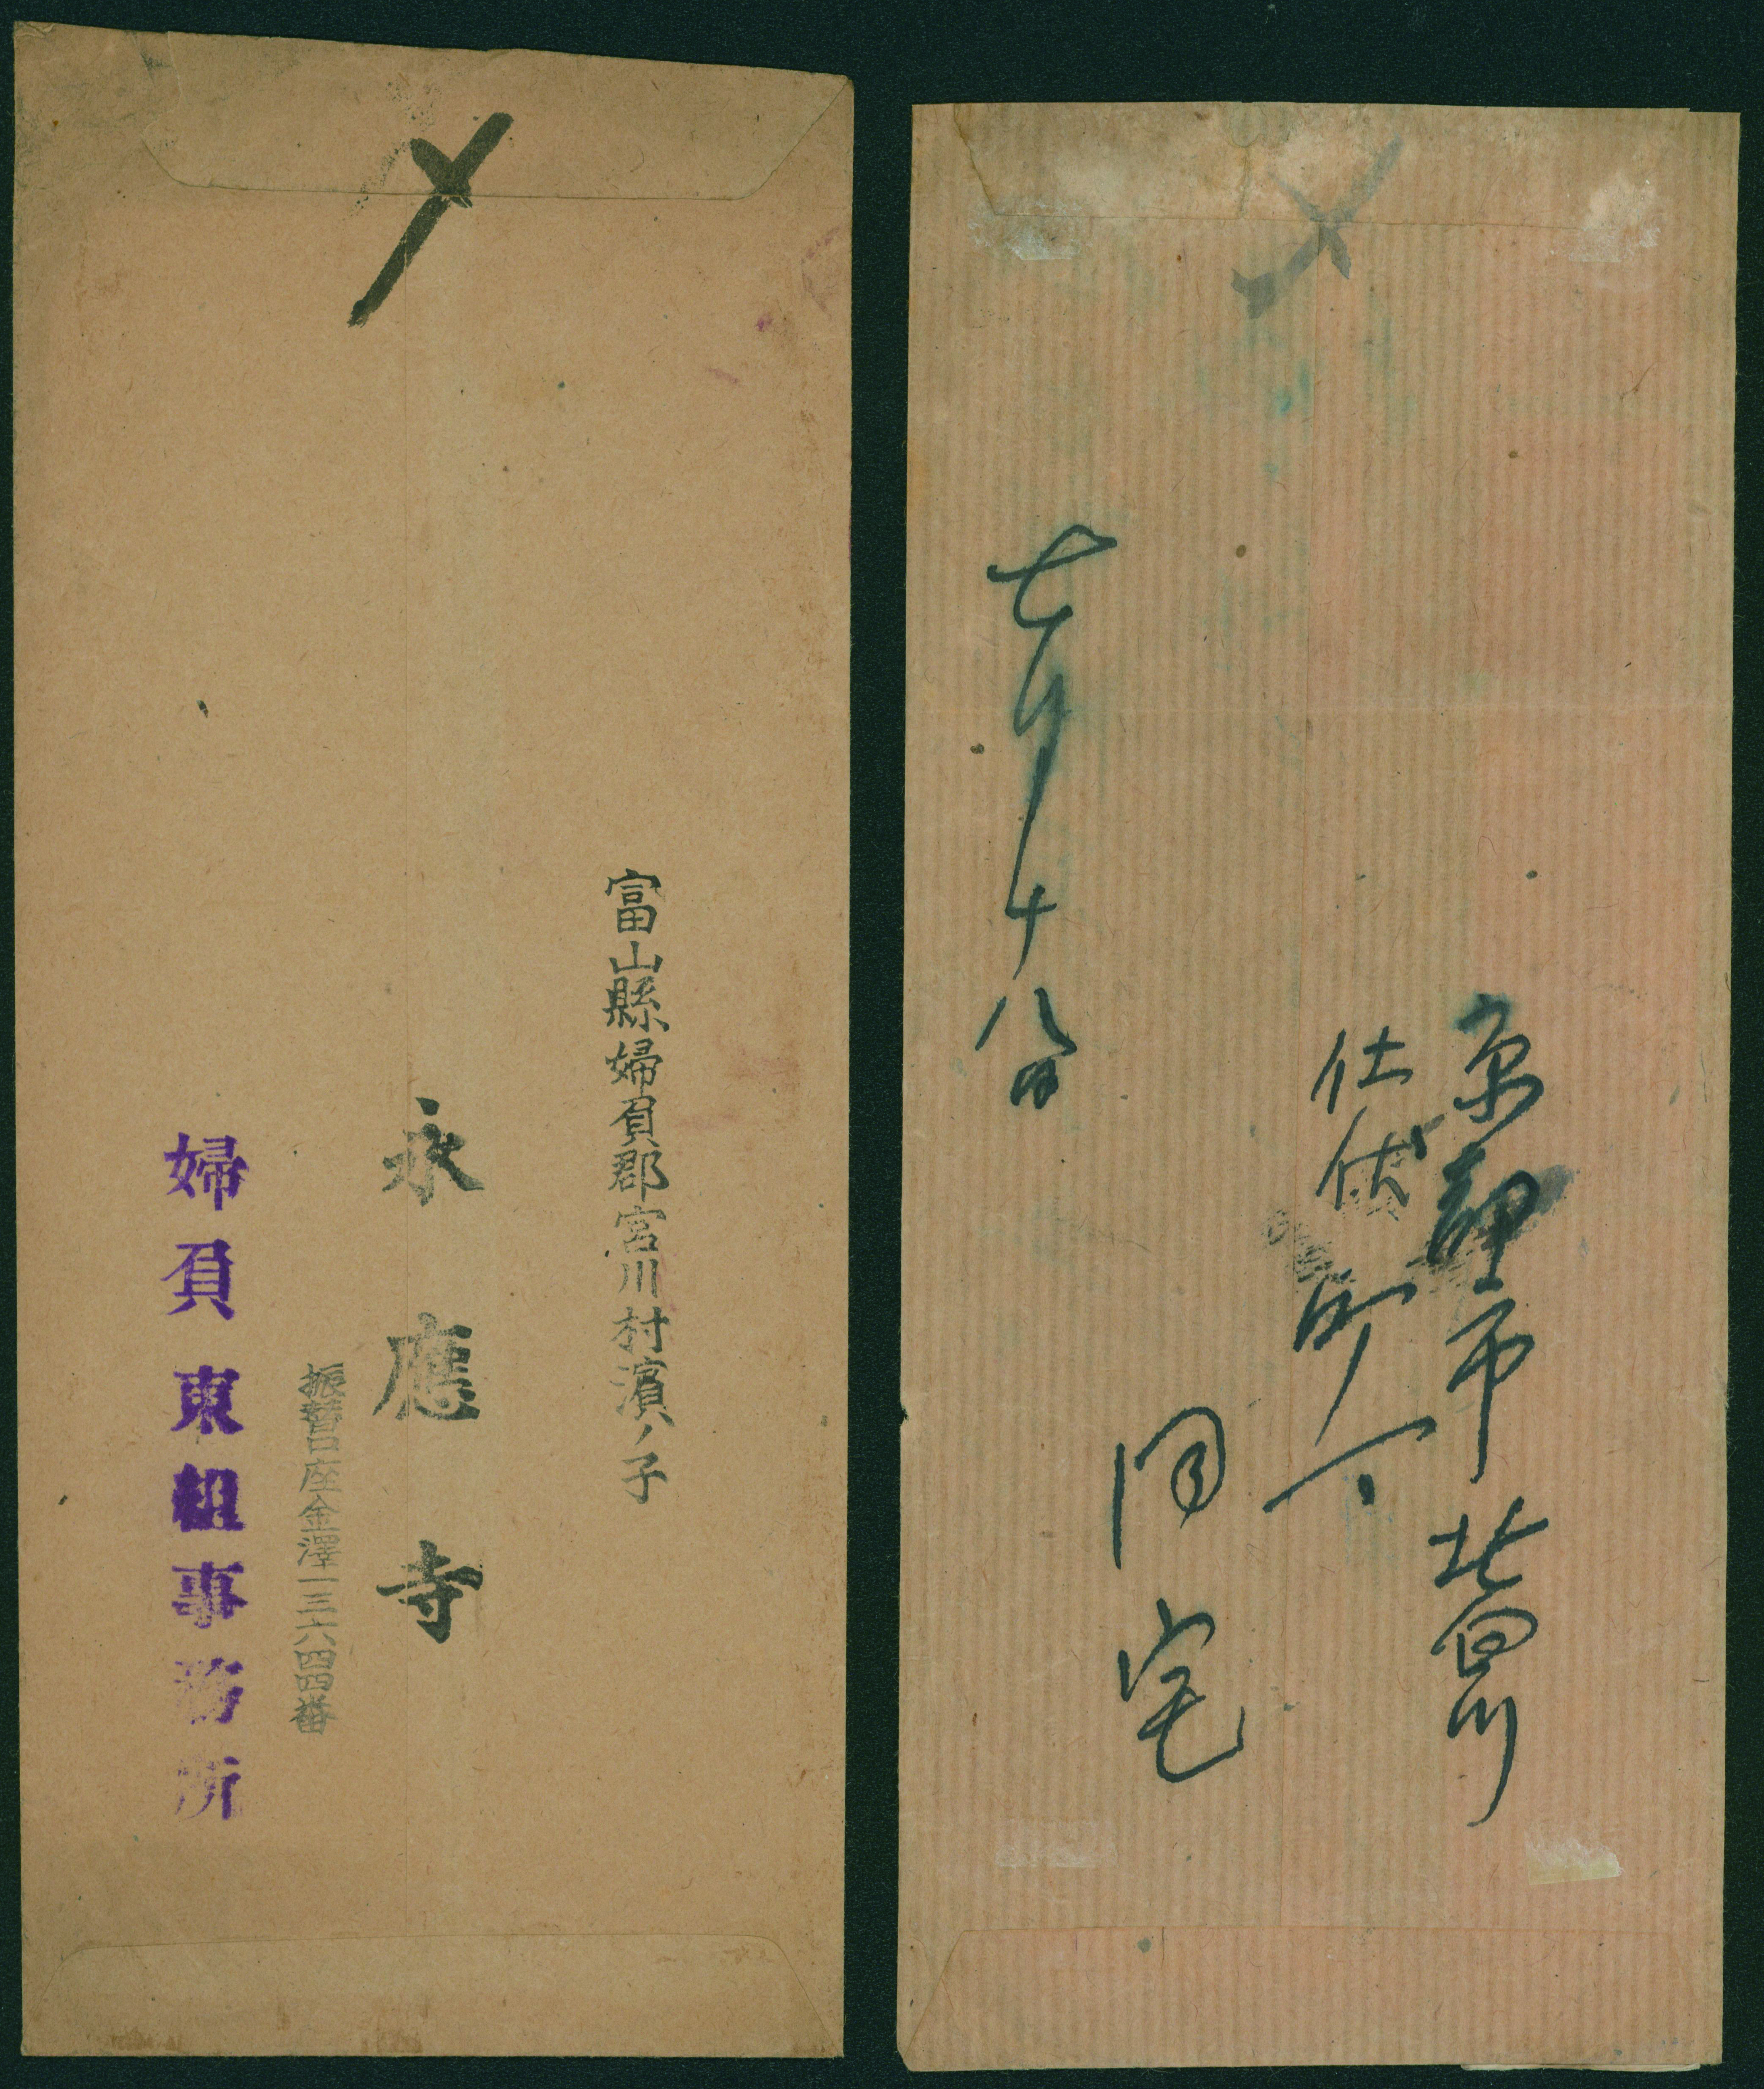 〆
富山縣婦負郡宮川村濱ノ子
永應寺
振替口座金澤一三六四四番
婦負東組事務所
〆
京都市北白川
仕伏町
同宅
七月十八日